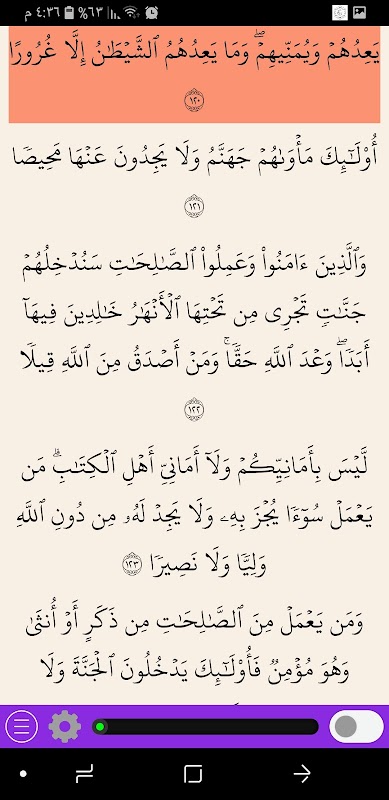 ٤:٣٦ م ٦٣%
يَعِدُهُمْ وَيُمَنِّيهِمْۖ وَمَا يَعِدُهُمُ ٱلشَّيْطَٰنُ إِلَّا غُرُورًا
١٢٠
أُوْلَٰٓئِكَ مَأْوَىٰهُمْ جَهَنَّمُ وَلَا يَجِدُونَ عَنْهَا مَحِيصٗا
١٢١
وَٱلَّذِينَ ءَامَنُواْ وَعَمِلُواْ ٱلصَّٰلِحَٰتِ سَنُدْخِلُهُمْ
جَنَّٰتٖ تَجْرِي مِن تَحْتِهَا ٱلْأَنْهَٰرُ خَٰلِدِينَ فِيهَآ
أَبَدٗاۖ وَعْدَ ٱللَّهِ حَقّٗاۚ وَمَنْ أَصْدَقُ مِنَ ٱللَّهِ قِيلٗا
١٢٢
لَّيْسَ بِأَمَانِيِّكُمْ وَلَآ أَمَانِيِّ أَهْلِ ٱلْكِتَٰبِۗ مَن
يَعْمَلْ سُوٓءٗا يُجْزَ بِهِۦ وَلَا يَجِدْ لَهُۥ مِن دُونِ ٱللَّهِ
وَلِيّٗا وَلَا نَصِيرٗا ١٢٣
وَمَن يَعْمَلْ مِنَ ٱلصَّٰلِحَٰتِ مِن ذَكَرٍ أَوْ أُنثَىٰ
وَهُوَ مُؤْمِنٞ فَأُوْلَٰٓئِكَ يَدْخُلُونَ ٱلْجَنَّةَ وَلَا